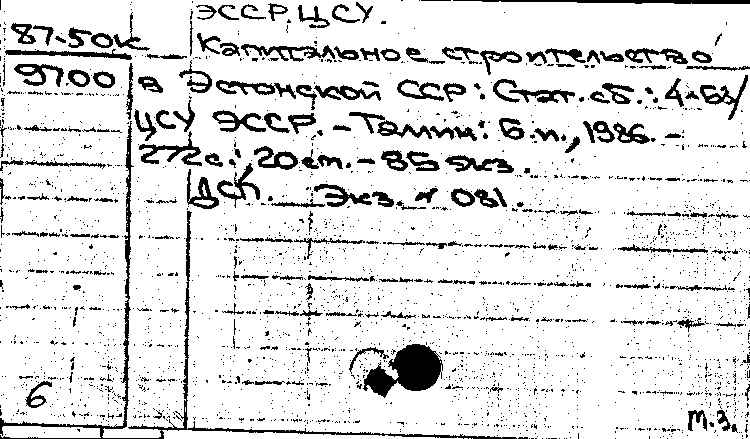 ЭССР. ЦСУ.
87-50к Капитальное строительство
9700 в Эстонской ССР: Стат. сб.: 4-БЗ/
ЦСУ ЭССР. - Таллин: Б.и., 1986. -
272с.; 20 см. - 85 экз.
ДСП. Экз. № 081.
6
м.з.